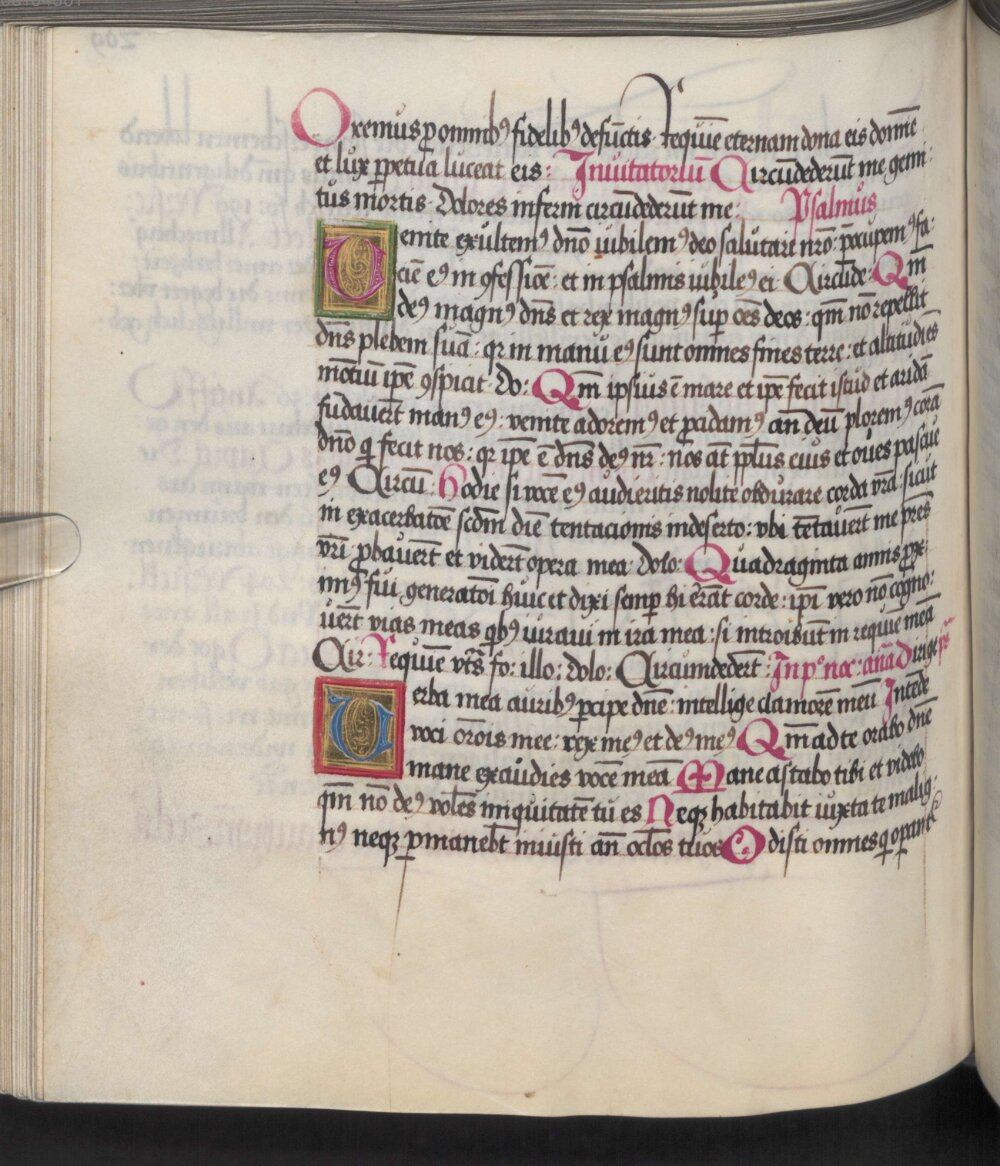 Oremus ꝓ omnibꝰ fidelibꝰ defūctis Requiē eternam dona eis domīe
et lux ꝑpetua luceat eis: Inuitatoriū Circūdederūt me gemi
tus mortis Dolores inferni circūdederūt me: Psalmus
Uenite exultemꝰ dn̄o iubilemꝰ deo salutari nr̄o: p̄occupemꝰ fa
ciē eꝰ in ꝯfessiōe: et in psalmis iubilemꝰ ei Circūde: Qm̄
deꝰ magnꝰ dn̄s et rex magnꝰ sup̄ oēs deos: qm̄ nō repellit
dn̄s plebem suā: qr in manu eꝰ sunt omnes fines terre: et altitudīes
mōtiū ip̄e ꝯspicit Do: Qm̄ ipsius ē mare et ip̄e fecit istud et aridā
fūdauert̄ manꝰ eꝰ: venite adoremꝰ et ꝓcidamꝰ an̄ deū ploremꝰ corā
dn̄o q̄ fecit nos: qr ip̄e ē dn̄s deꝰ nr̄: nos at̄ pp̄lus eius et oues pascue
eꝰ Circū: Hodie si vocē eꝰ audieritis nolite obdurare corda vr̄a: sicut
in exacerbatōe scd̄m diē tentacionis in deserto: vbi tētauert̄ me pr̄es
vr̄i ꝓbauert̄ et vidert̄ opera mea: Dolo: Quadraginta annis ꝓxi
imꝰ fui generatoī huic et dixi semp̄ hi erāt corde: ip̄i vero nō cogno:
uert̄ vias meas qbꝰ iuraui in ira mea: si introibūt in requiē meā
Cir: Requiē vts̄ fo: illo: Dolo: Circumdedert̄: In pͦ noc: an̄a Dirige ps̄
Uerba mea auribꝰ ꝑcipe dn̄e: intellige clamorē meū Intēde
voci orōis mee: rex meꝰ et deꝰ meꝰ Qm̄ ad te orabo dn̄e
mane exaudies vocē meā Mane astabo tibi et videbo
qm̄ nō deꝰ volēs iniquitatē tu es Neqꝫ habitabit iuxta te malig
nꝰ neqꝫ ꝑmanebt̄ iniusti an̄ oclōs tuos Odisti omnes q̄ operant̄